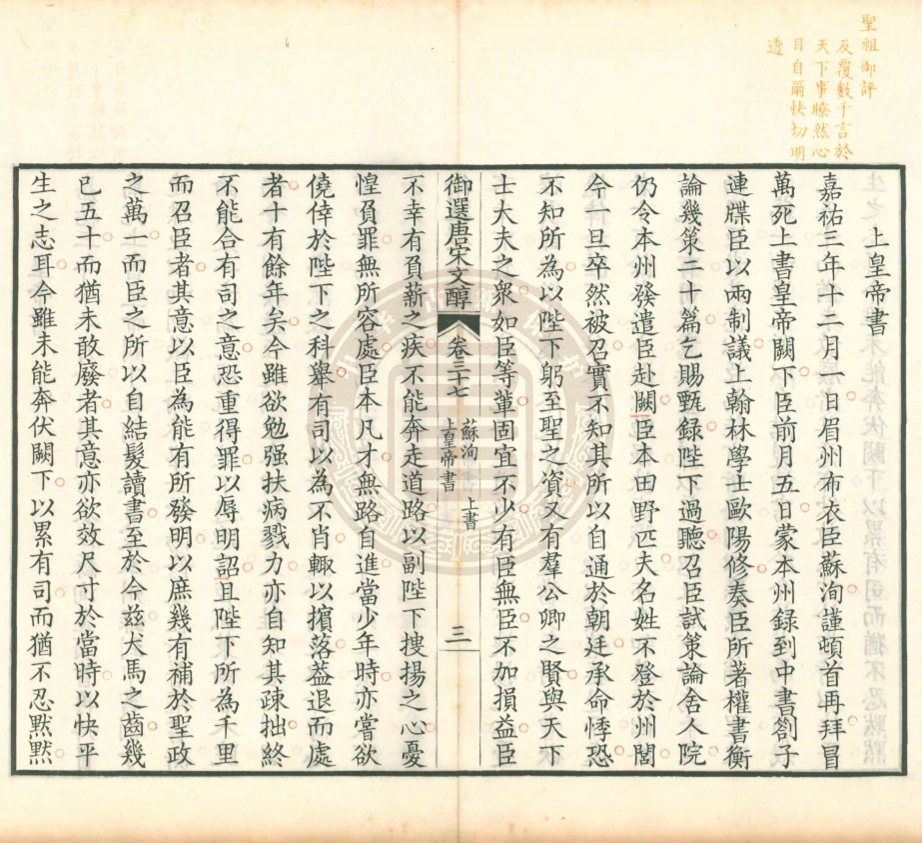 聖祖御評
反覆數千言於
天下事瞭然心
目自爾快切明
透
上皇帝書
嘉祐三年十二月一日眉州布衣臣蘇洵謹頓首再拜冒
萬死上書皇帝闕下臣前月五日蒙本州錄到中書劄子
連牒臣以兩制議上翰林學士歐陽修奏臣所著權書衡
論幾策二十篇乞賜甄錄陛下過聽召臣試策論舍人院
仍令本州發遣臣赴闕臣本田野匹夫名姓不登於州閭
今一旦卒然被召實不知其所以自通於朝廷承命悸恐
不知所為以陛下躬至聖之資又有羣公卿之賢與天下
士大夫之衆如臣等輩固宜不少有臣無臣不加損益臣
御選唐宋文醇
卷三十七
蘇洵 上書
上皇帝書
三
不幸有負薪之疾不能奔走道路以副陛下搜揚之心憂
惶負罪無所容處臣本凡才無路自進當少年時亦嘗欲
僥倖於陛下之科舉有司以為不肖輙以擯落葢退而處
者十有餘年矣今雖欲勉强扶病戮力亦自知其疎拙終
不能合有司之意恐重得罪以辱明詔且陛下所為千里
而召臣者其意以臣為能有所發明以庶幾有補於聖政
之萬一而臣之所以自結髮讀書至於今兹犬馬之齒幾
已五十而猶未敢廢者其意亦欲效尺寸於當時以快平
生之志耳今雖未能奔伏闕下以累有司而猶不忍默默